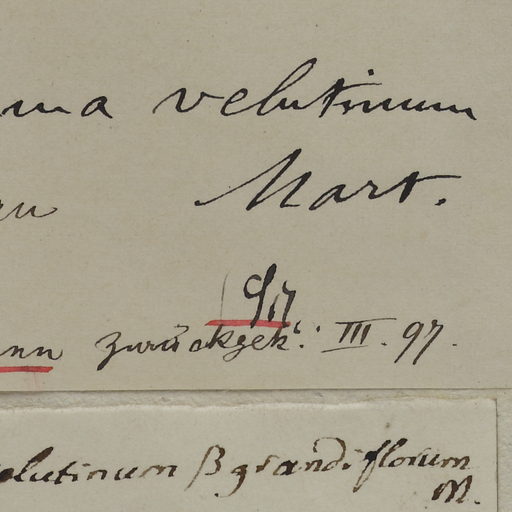 ma velutinum
Mart.
nn zurückgek: III. 97.
elutinum β grandiflorum
M.